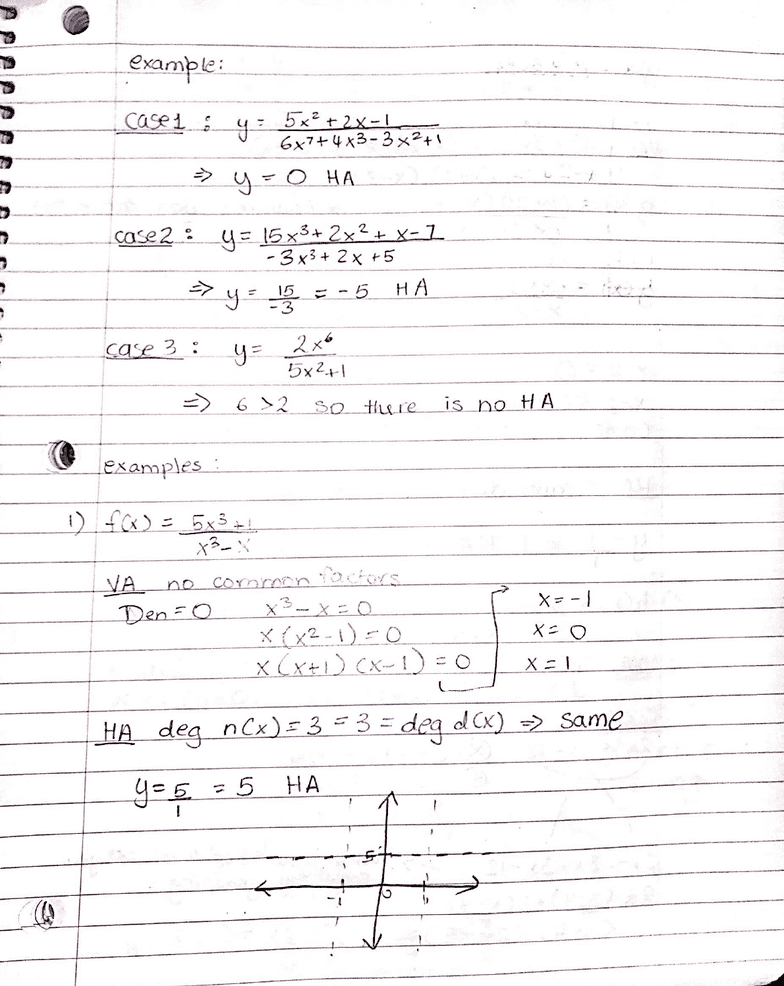 example:
case 1 : y = 5x² + 2x - 1 / 6x⁷ + 4x³ - 3x² + 1
⇒ y = 0 HA
case 2 : y = 15x³ + 2x² + x - 7 / -3x³ + 2x + 5
⇒ y = 15/-3 = -5 HA
case 3 : y = 2x⁶ / 5x² + 1
⇒ 6 > 2 so there is no HA
examples :
1) f(x) = 5x³ + 1 / x³ - x
VA no common factors
Den = 0 x³ - x = 0
x (x² - 1) = 0
x (x+1) (x-1) = 0
x = -1
x = 0
x = 1
HA deg n(x) = 3 = 3 = deg d(x) ⇒ same
y = 5/1 = 5 HA
5
-1 0 1